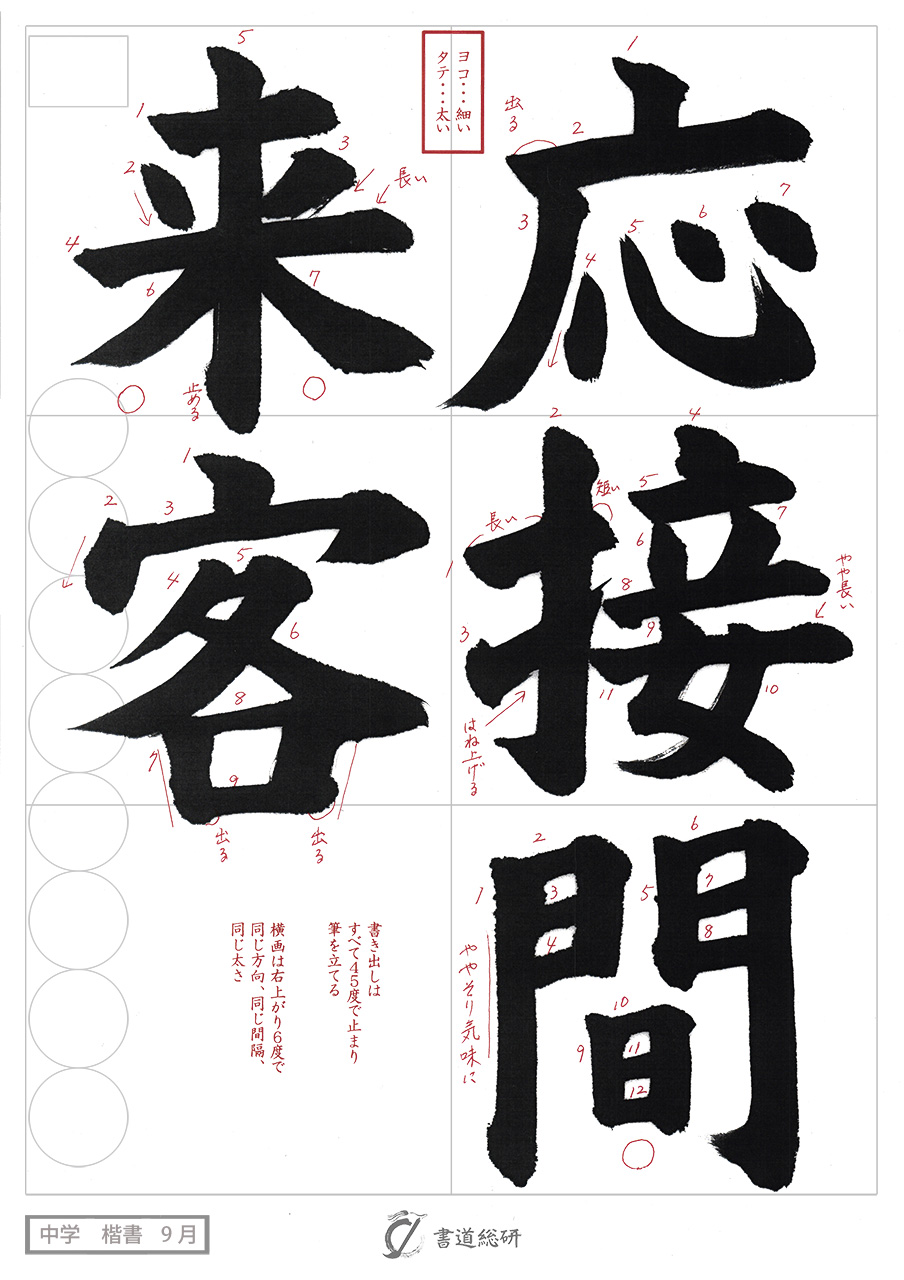 応接間
来客
ヨコ・・・細い
タテ・・・太い
出る
長い
止める
短い
長い
やや長い
はね上げる
出る
出る
ややそり気味に
書き出しは
すべて45度で止まり
筆を立てる
横画は右上がり6度で
同じ方向、同じ間隔、
同じ太さ
1
2
3
4
5
6
7
1
2
3
4
5
6
7
8
9
10
11
1
2
3
4
5
6
7
8
9
10
11
12
1
2
3
4
5
6
7
1
2
3
4
5
6
7
8
9
中学 楷書 9月
書道総研